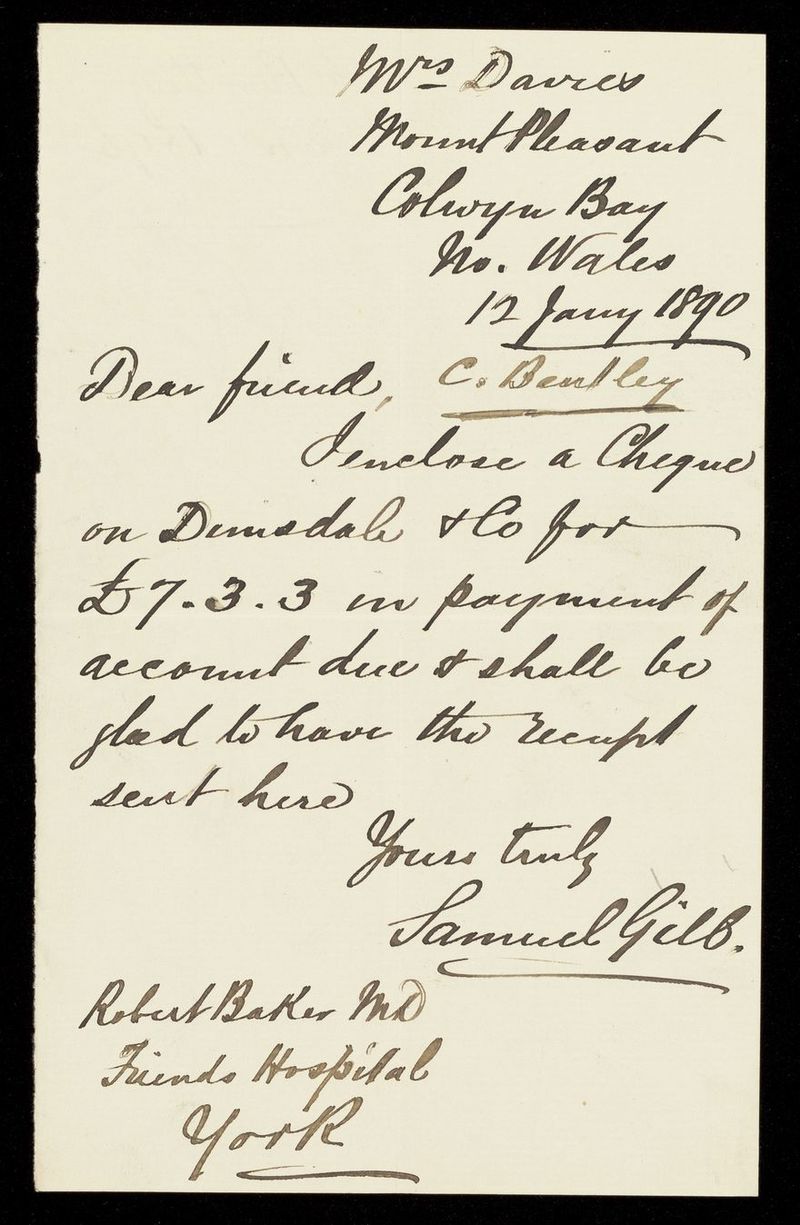 Mrs Davies
Mount Pleasant
Colwyn Bay
No. Wales
12 Jany 1890
Dear friend, C. Bentley
I enclose a Cheque
on Dimsdale & Co for
£7.3.3 in payment of
account due & shall be
glad to have the receipt
sent here
Yours truly
Samuel Gill.
Robert Baker MD
Friends Hospital
York